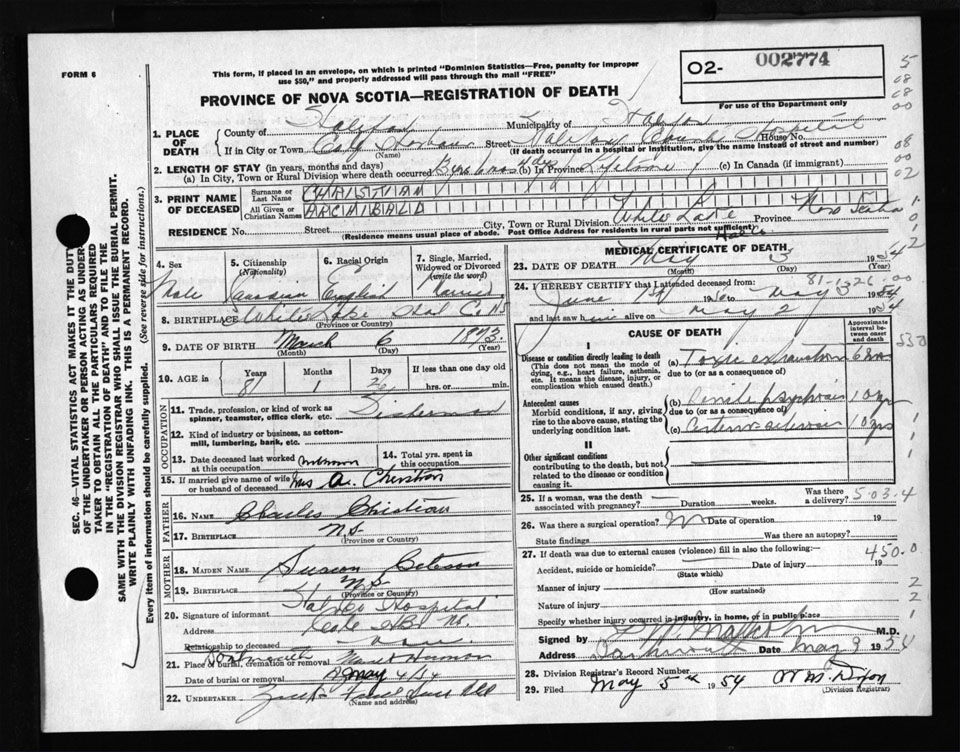 FORM 6
This form, if placed in an envelope, on which is printed "Dominion Statistics—Free, penalty for improper
use $50," and properly addressed will pass through the mail "FREE"
O2- 002774
For use of the Department only
PROVINCE OF NOVA SCOTIA—REGISTRATION OF DEATH
1. PLACE OF DEATH
County of Halifax Municipality of Halifax
If in City or Town Cole Harbour Street Halifax County Hospital House No.
(Name) (If death occurred in a hospital or institution, give the name instead of street and number)
2. LENGTH OF STAY (in years, months and days)
(a) In City, Town or Rural Division where death occurred (b) In Province Lifetime (c) In Canada (if immigrant)
3. PRINT NAME OF DECEASED
Surname or Last Name CHRISTIAN
All Given or Christian Names ARCHIBALD
RESIDENCE No. Street City, Town or Rural Division White Lake Province Nova Scotia
(Residence means usual place of abode. Post Office Address for residents in rural parts not sufficient) Hal Co.
4. Sex Male
5. Citizenship (Nationality) Canadian
6. Racial Origin English
7. Single, Married, Widowed or Divorced (write the word) Married
8. BIRTHPLACE White Lake Hal Co NS
(Province or Country)
9. DATE OF BIRTH March 6 1873
(Month) (Day) (Year)
10. AGE in Years 81 Months 1 Days 26 If less than one day old hrs. or min.
OCCUPATION
11. Trade, profession, or kind of work as spinner, teamster, office clerk, etc. Fisherman
12. Kind of industry or business, as cotton-mill, lumbering, bank, etc.
13. Date deceased last worked at this occupation unknown
14. Total yrs. spent in this occupation
15. If married give name of wife or husband of deceased Mrs A. Christian
FATHER
16. NAME Charles Christian
17. BIRTHPLACE N.S.
(Province or Country)
MOTHER
18. MAIDEN NAME Susan
19. BIRTHPLACE N.S.
(Province or Country)
20. Signature of informant Hal Co Hospital
Address Cole Hbr NS.
Relationship to deceased none
21. Place of burial, cremation or removal Dartmouth Mount Hermon
Date of burial or removal May 4/54
22. UNDERTAKER
(Name and address)
MEDICAL CERTIFICATE OF DEATH
23. DATE OF DEATH May 3 1954
(Month) (Day) (Year)
81-1-26
24. I HEREBY CERTIFY that I attended deceased from:
June 1st 19 to May 3 1954
and last saw him alive on May 2 1954
CAUSE OF DEATH
Approximate interval between onset and death
I
Disease or condition directly leading to death
(This does not mean the mode of dying, e.g., heart failure, asthenia, etc. It means the disease, injury, or complication which caused death.)
(a) Toxic exhaustion 6
due to (or as a consequence of)
Antecedent causes
Morbid conditions, if any, giving rise to the above cause, stating the underlying condition last.
(b) Senile psychosis 10 yrs
due to (or as a consequence of)
(c) Arterio-sclerosis 10 yrs
II
Other significant conditions
contributing to the death, but not related to the disease or condition causing it.
25. If a woman, was the death associated with pregnancy? Duration weeks. Was there a delivery?
26. Was there a surgical operation? No Date of operation 19
State findings Was there an autopsy?
27. If death was due to external causes (violence) fill in also the following:—
Accident, suicide or homicide? Date of injury 19
(State which)
Manner of injury
(How sustained)
Nature of injury
Specify whether injury occurred in industry, in home, or in public place
Signed by M.D.
Address Dartmouth Date May 3 1954
28. Division Registrar's Record Number
29. Filed May 5th 1954 Wm. Dixon
(Division Registrar)
503.4
450.0
SEC. 46—VITAL STATISTICS ACT MAKES IT THE DUTY
OF THE UNDERTAKER OR PERSON ACTING AS UNDER-
TAKER TO OBTAIN ALL THE PARTICULARS REQUIRED
IN THE "REGISTRATION OF DEATH" AND TO FILE THE
SAME WITH THE DIVISION REGISTRAR WHO SHALL ISSUE THE BURIAL PERMIT.
WRITE PLAINLY WITH UNFADING INK. THIS IS A PERMANENT RECORD.
Every item of information should be carefully supplied. (See reverse side for instructions.)